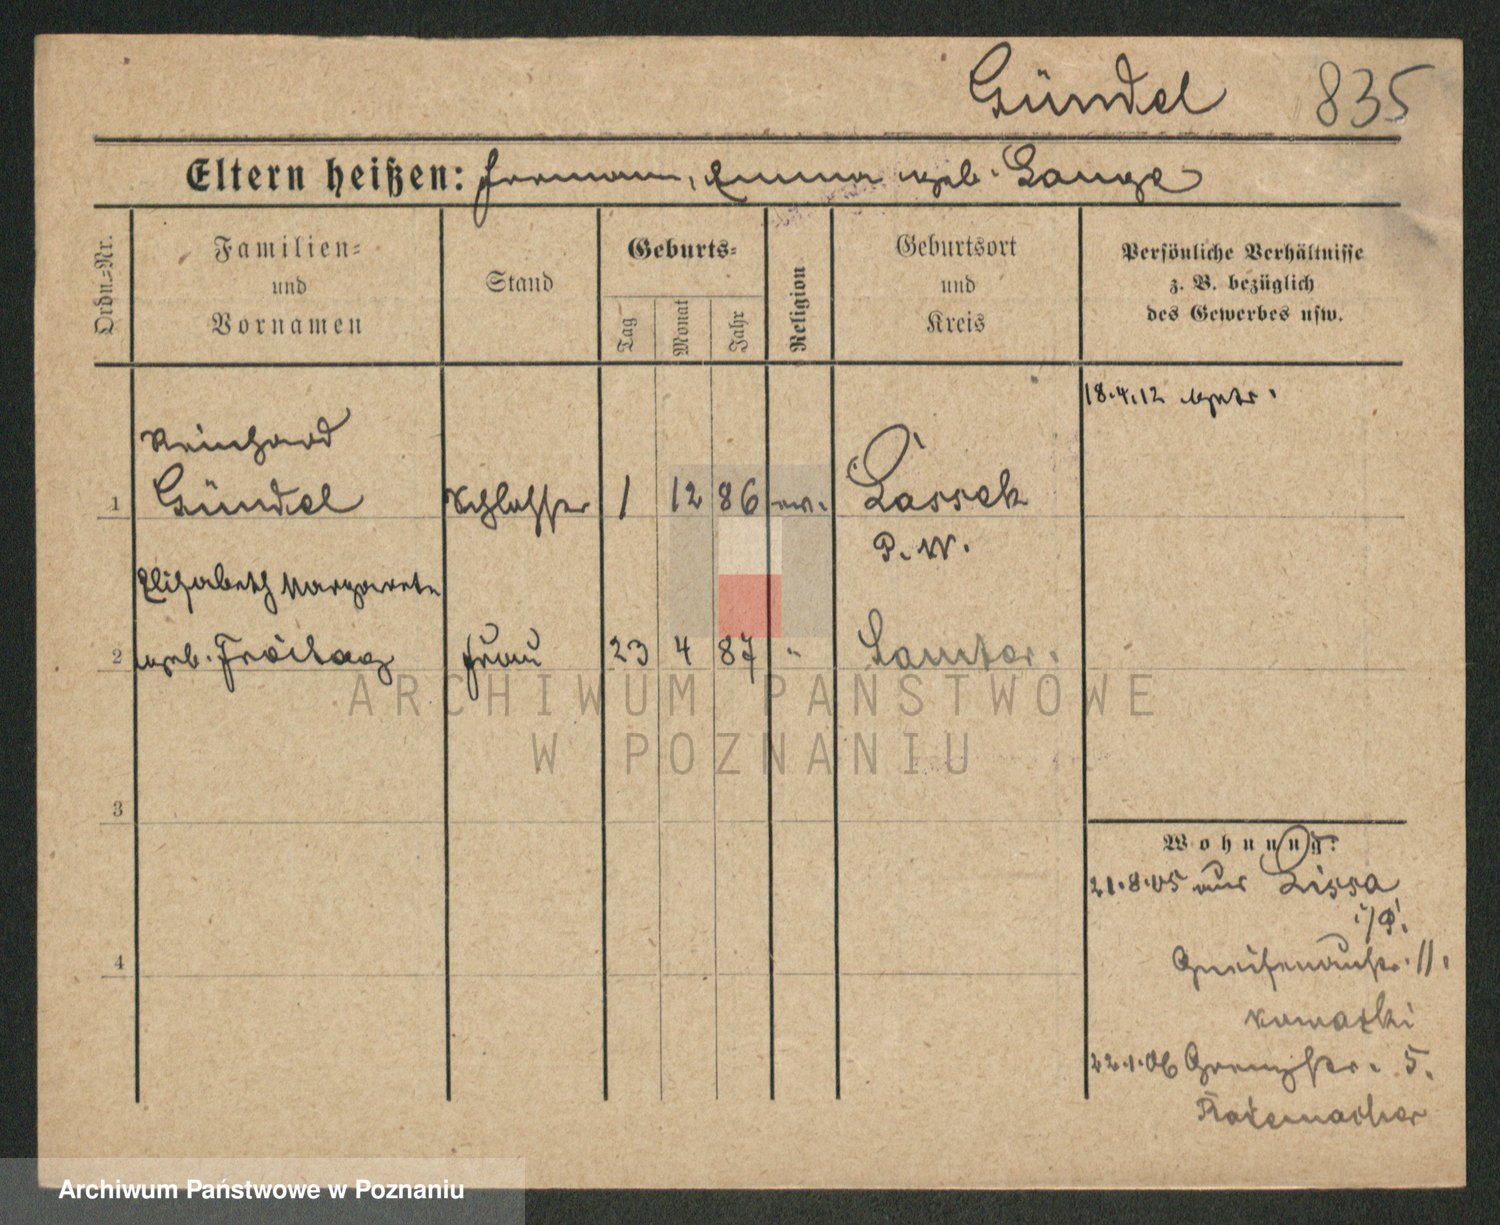 Gündel 835
Eltern heißen: Hermann, Emma geb. Lange
Ordn.-Nr.
Familien-
und
Vornamen
Stand
Geburts-
Tag
Monat
Jahr
Religion
Geburtsort
und
Kreis
Persönliche Verhältnisse
z. B. bezüglich
des Gewerbes usw.
18.4.12
Reinhard
1 Gündel Schlosser 1 12 86 ev. Lassek
P. W.
Elisabeth Margarete
2 geb. Freitag Frau 23 4 87 " Samter.
3
4
Wohnung:
21.8.05 aus Lissa
i/P.
Gneisenaustr. 11.
Nowatzki
22.1.06 Grenzstr. 5.
Rademacher
ARCHIWUM PAŃSTWOWE
W POZNANIU
Archiwum Państwowe w Poznaniu